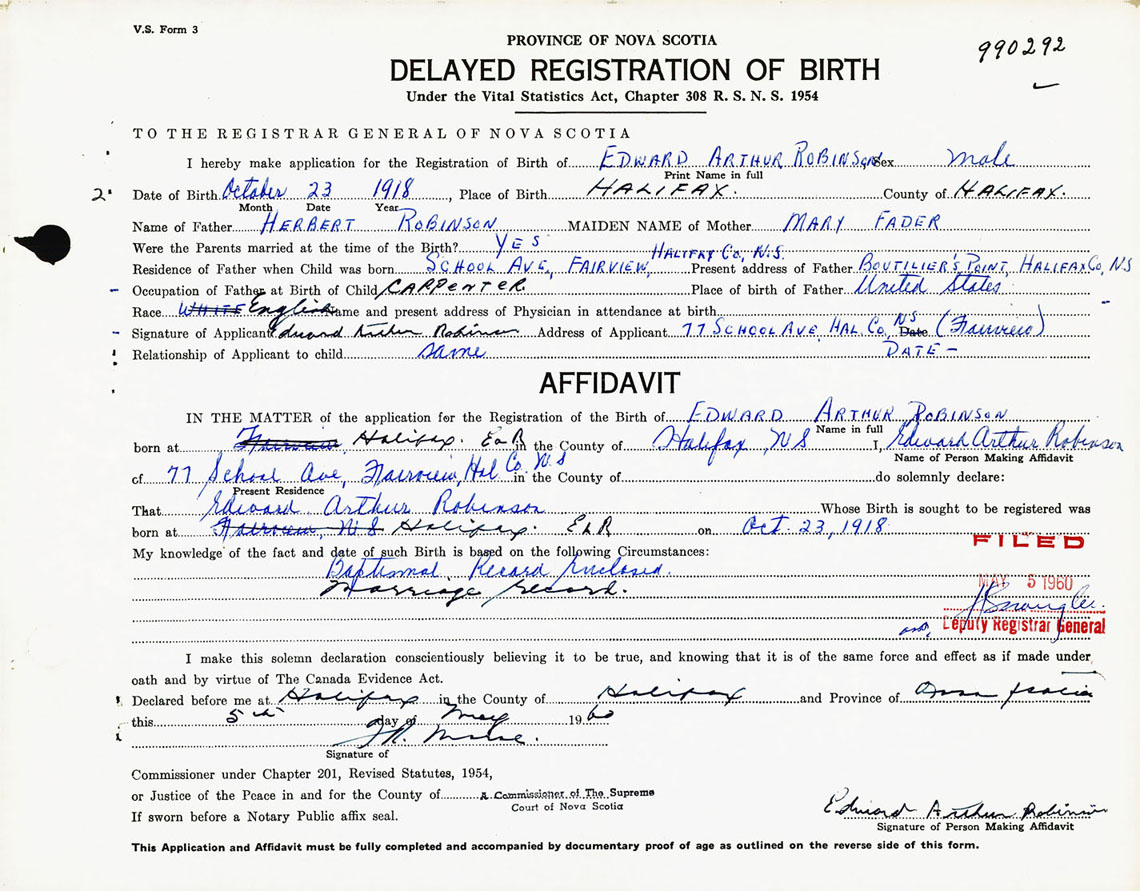 V.S. Form 3
990292
PROVINCE OF NOVA SCOTIA
DELAYED REGISTRATION OF BIRTH
Under the Vital Statistics Act, Chapter 308 R. S. N. S. 1954
TO THE REGISTRAR GENERAL OF NOVA SCOTIA
I hereby make application for the Registration of Birth of EDWARD ARTHUR ROBINSON Sex male
Print Name in full
2. Date of Birth October 23 1918, Place of Birth HALIFAX. County of HALIFAX.
Month Date Year
Name of Father HERBERT ROBINSON MAIDEN NAME of Mother MARY FADER
Were the Parents married at the time of the Birth? YES
HALIFAX CO., N.S.
Residence of Father when Child was born SCHOOL AVE, FAIRVIEW, Present address of Father BOUTILIER'S POINT, HALIFAX CO, NS
Occupation of Father at Birth of Child CARPENTER Place of birth of Father United States
Race WHITE English Name and present address of Physician in attendance at birth
Signature of Applicant Edward Arthur Robinson Address of Applicant 77 SCHOOL AVE, HAL. CO, NS Date (Fairview)
Relationship of Applicant to child same DATE -
AFFIDAVIT
IN THE MATTER of the application for the Registration of the Birth of EDWARD ARTHUR ROBINSON
Name in full
born at Fairview, Halifax. EaR in the County of Halifax, NS I, Edward Arthur Robinson
Name of Person Making Affidavit
of 77 School Ave, Fairview, Hal Co. N.S in the County of do solemnly declare:
Present Residence
That Edward Arthur Robinson Whose Birth is sought to be registered was
born at Fairview, NS Halifax. EaR on Oct. 23, 1918
My knowledge of the fact and date of such Birth is based on the following Circumstances:
FILED
Baptismal Record Enclosed.
Marriage record.
MAY 5 1960
Deputy Registrar General
I make this solemn declaration conscientiously believing it to be true, and knowing that it is of the same force and effect as if made under
oath and by virtue of The Canada Evidence Act.
Declared before me at Halifax in the County of Halifax and Province of Nova Scotia
this 5th day of May 1960
Signature of
Commissioner under Chapter 201, Revised Statutes, 1954,
or Justice of the Peace in and for the County of A Commissioner of The Supreme
Court of Nova Scotia
If sworn before a Notary Public affix seal.
Edward Arthur Robinson
Signature of Person Making Affidavit
This Application and Affidavit must be fully completed and accompanied by documentary proof of age as outlined on the reverse side of this form.